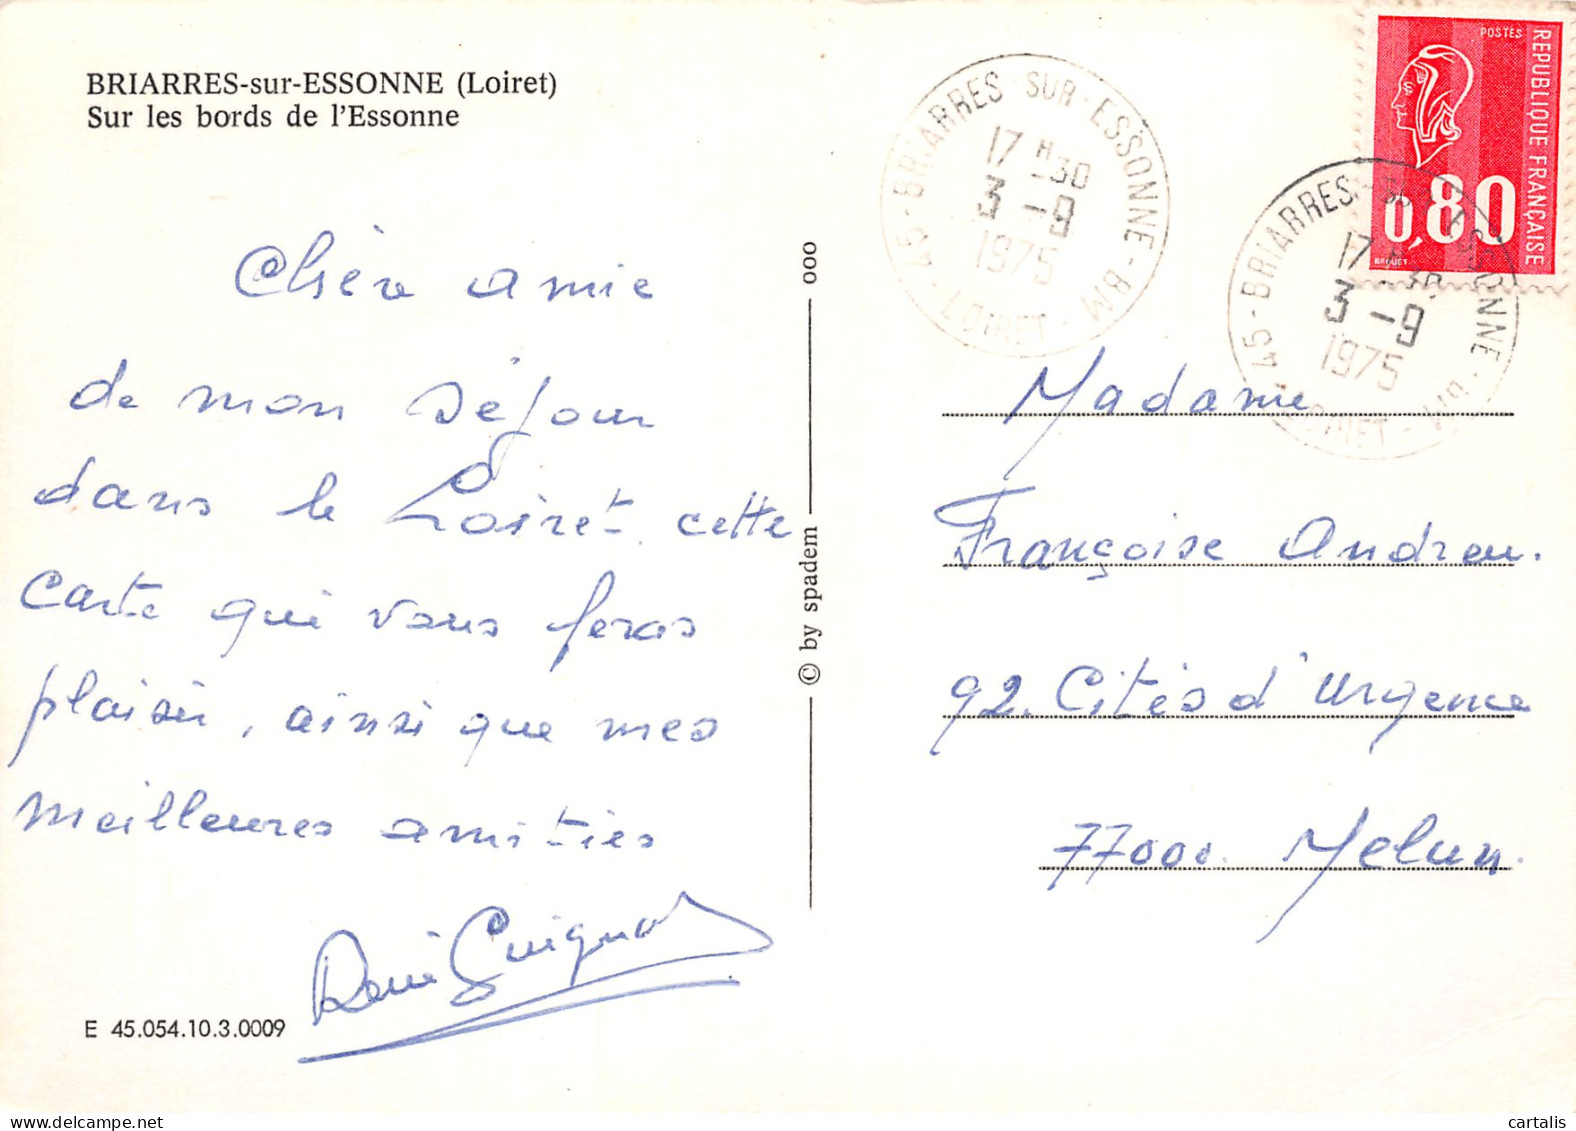 BRIARRES-sur-ESSONNE (Loiret)
Sur les bords de l'Essonne
Chère amie
de mon séjour
dans le Loiret, cette
carte qui vous feras
plaisir, ainsi que mes
meilleures amitiés
René Guignol
E 45.054.10.3.0009
© by spadem
000
45 - BRIARRES - SUR - ESSONNE - BM
17 H 30
3 - 9
1975
- LOIRET -
45 - BRIARRES - SUR - ESSONNE - BM
17 H 30
3 - 9
1975
LOIRET -
POSTES
REPUBLIQUE FRANÇAISE
0,80
BEQUET
Madame
Françoise Andreu.
92. Cités d'Urgence
77000. Melun.
cartalis